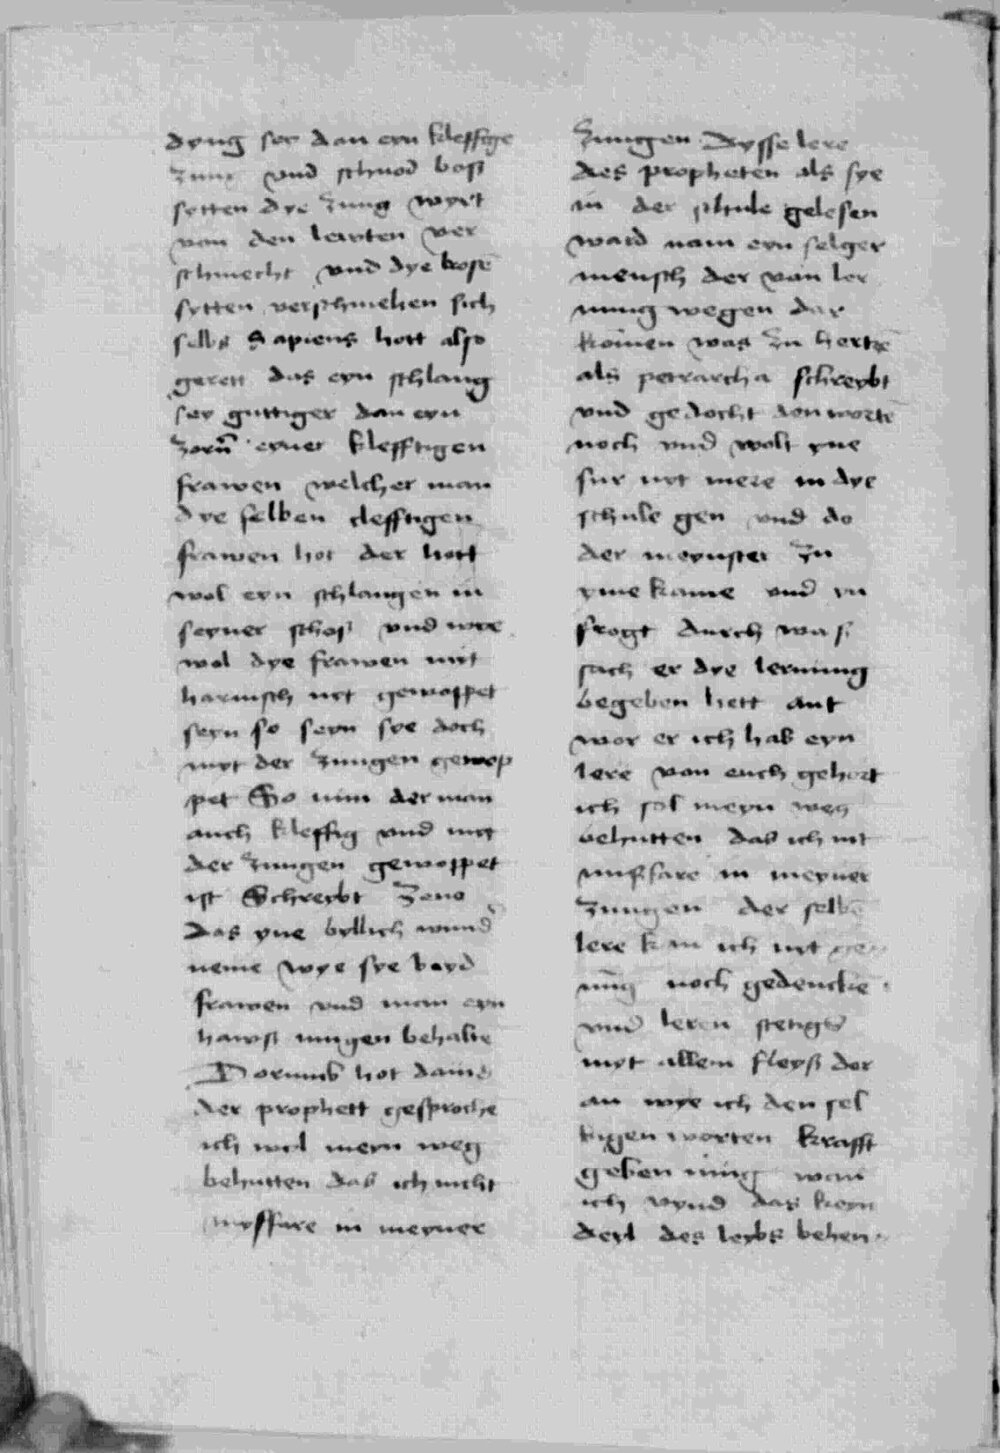 dyng sey dan eyn kleffige
zung vnd schnod boß
sytten dye zung wyrt
von den lewten ver
schmecht vnd dye bosē
sytten verschmehen sich
selbs Sapiens hott also
gerett das eyn schlang
sey guttiger dan eyn
zorn̄ eyner klefftigen
frawen welcher man
dye selben clefftigen
frawen hot der hott
wol eyn schlangen in
seyner schoß vnd wye
wol dye frawen mit
harnisch nyt gewoppet
seyn so seyn sye doch
myt der zungen gewop
pet So nim der man
auch kleffig vnd myt
der zungen gewoppet
ist Schreybt Zeno
das yne byllich wund
neme wye sye beyd
frawen vnd man eyn
hawß mugen behaltē
Dorumb hot dauid
der prophett gesprochē
ich wol meyn weg
behutten das ich nicht
myssfare in meyner
zungen Dysse lere
des propheten als sye
in der schule gelesen
ward nam eyn selger
mensch der von ler
nung wegen dar
komen was zu hertzē
als petrarcha schreybt
vnd gedocht den wortē
noch vnd wolt yne
fur nyt mere in dye
schule gen vnd do
der meynster zu
yme kame vnd yn
frogt durch was
sach er dye lernung
begeben hett ant
wor er ich hab eyn
lere von euch gehort
ich sol meyn weg
behutten das ich nit
missfare in meyner
zungen der selbē
lere kan ich nit
noch gedencke
vnd leren stetigs
myt allem fleyß dor
an wye ich den sel
bigen worten krafft
geben mug wan
ich vynd das keyn
deyl des leybs behen